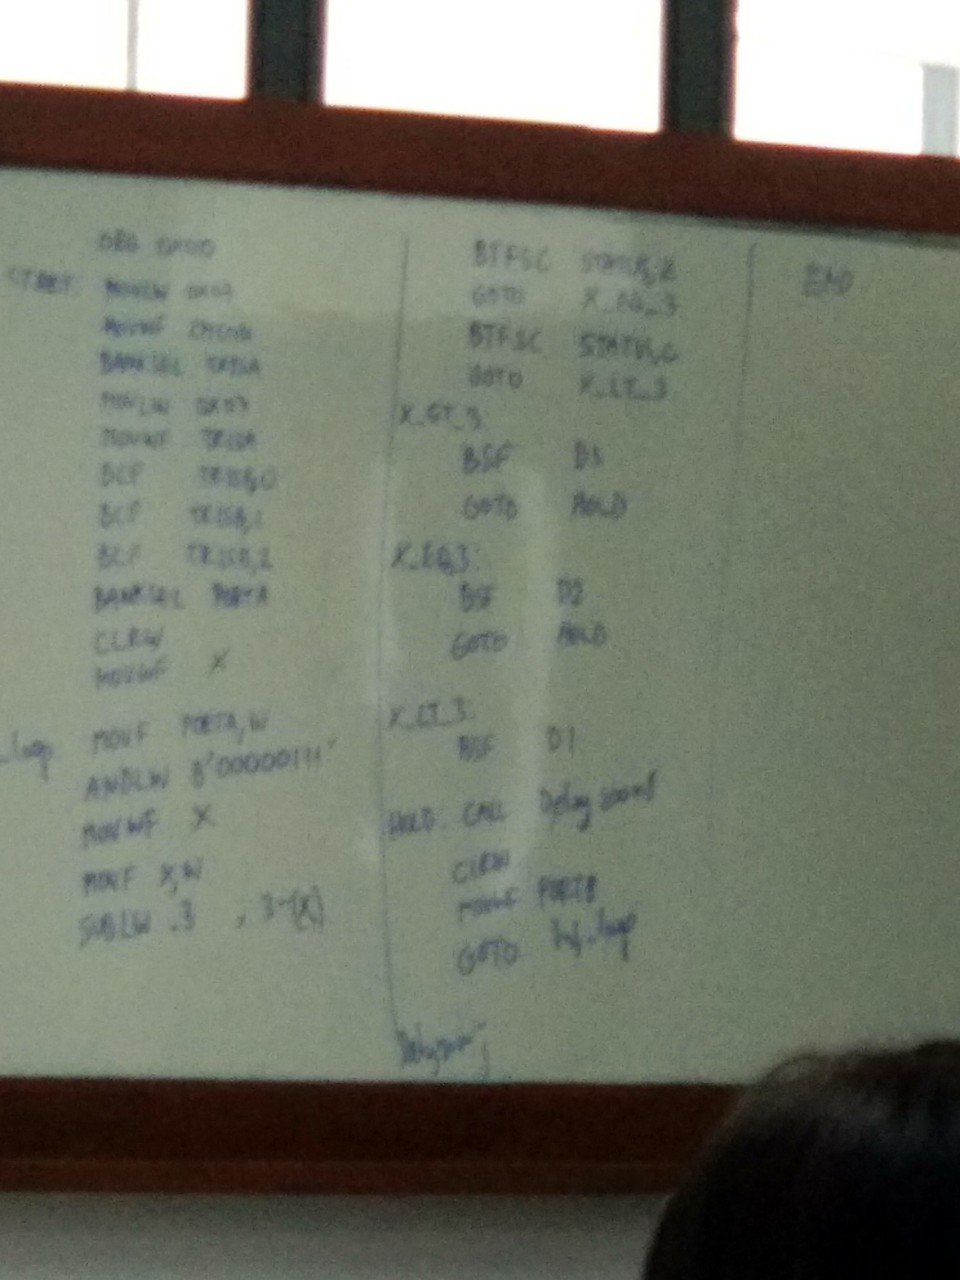 ORG 0X00
START: MOVLW 0X07
MOVWF CMCON
BANKSEL TRISA
MOVLW 0X07
MOVWF TRISA
BCF TRISB,0
BCF TRISB,1
BCF TRISB,2
BANKSEL PORTA
CLRW
MOVWF X
loop MOVF PORTA,W
ANDLW B'00000111'
MOVWF X
MOVF X,W
SUBLW .3 ; 3-(X)
BTFSC STATUS,Z
GOTO X_EQ_3
BTFSC STATUS,C
GOTO X_LT_3
X_GT_3
BSF D3
GOTO HOLD
X_EQ_3:
BSF D2
GOTO HOLD
X_LT_3:
BSF D1
HOLD: CALL
CLRW
MOVWF PORTB
GOTO Inf_loop
END